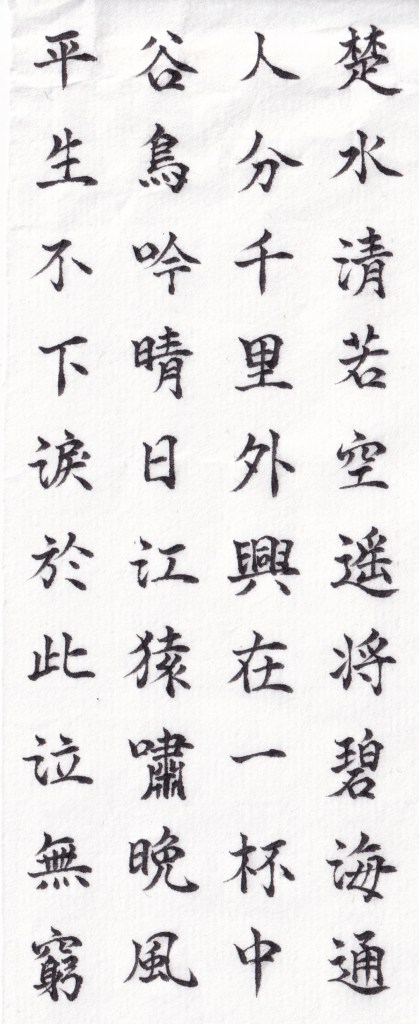 楚水清若空遥将碧海通
人分千里外興在一杯中
谷鳥吟晴日江猿嘯晩風
平生不下涙於此泣無窮